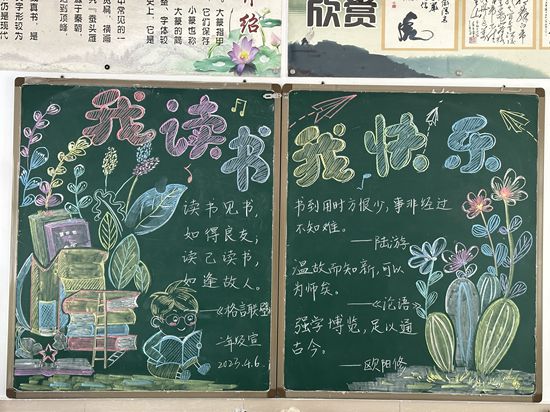 介绍
它们保存
大篆指甲
小篆也称
大篆的简
史上，它是
中常见的一
宽扁，横画
蚕头雁
真书，是
到顶峰
字形较为
仍是现代
欣赏
我读书
读书见书，
如得良友；
读己读书，
如逢故人。
——《格言联璧》
二年级宣
2023.4.6.
我快乐
书到用时方很少，事非经过
不知难。
——陆游
温故而知新，可以
为师矣。
——《论语》
强学博览，足以通
古今。
——欧阳修